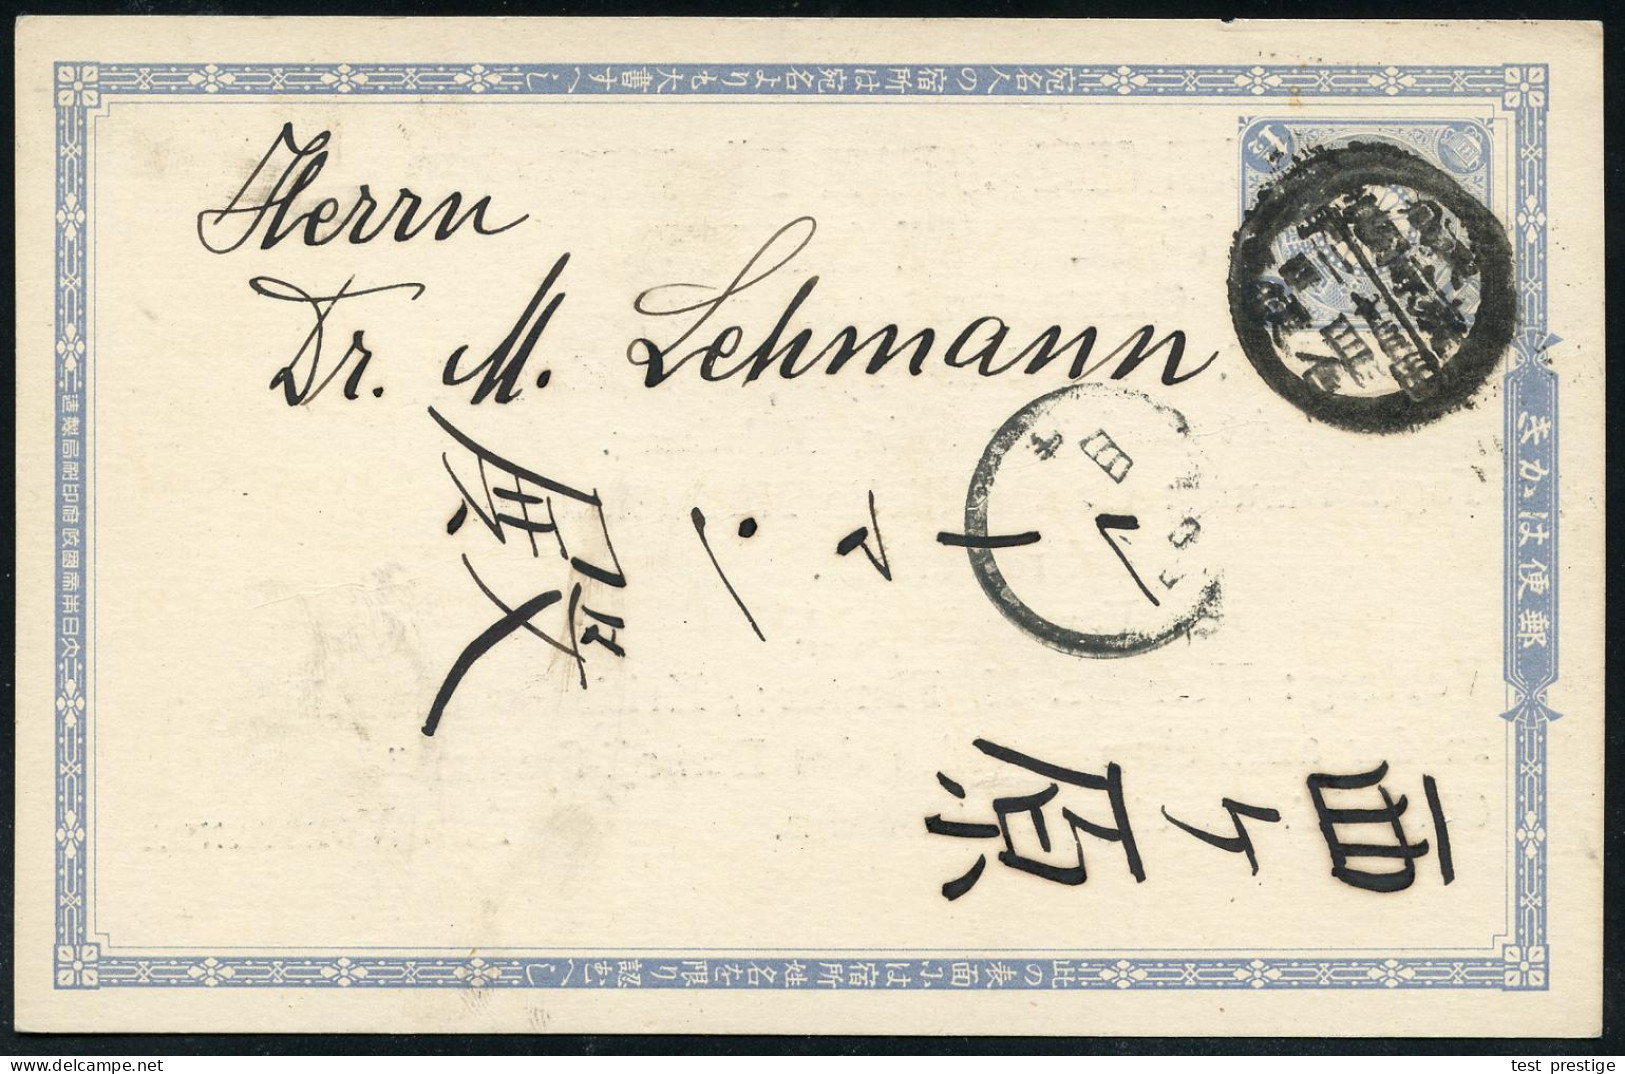 Herrn
Dr. M. Lehmann
西ヶ原
レーマン
殿
郵便はがき
宛名人の宿所は宛名よりも大書すべし
此の表面には宿所姓名を限り認むべし
大日本帝國政府印刷局製造
1½
test prestige